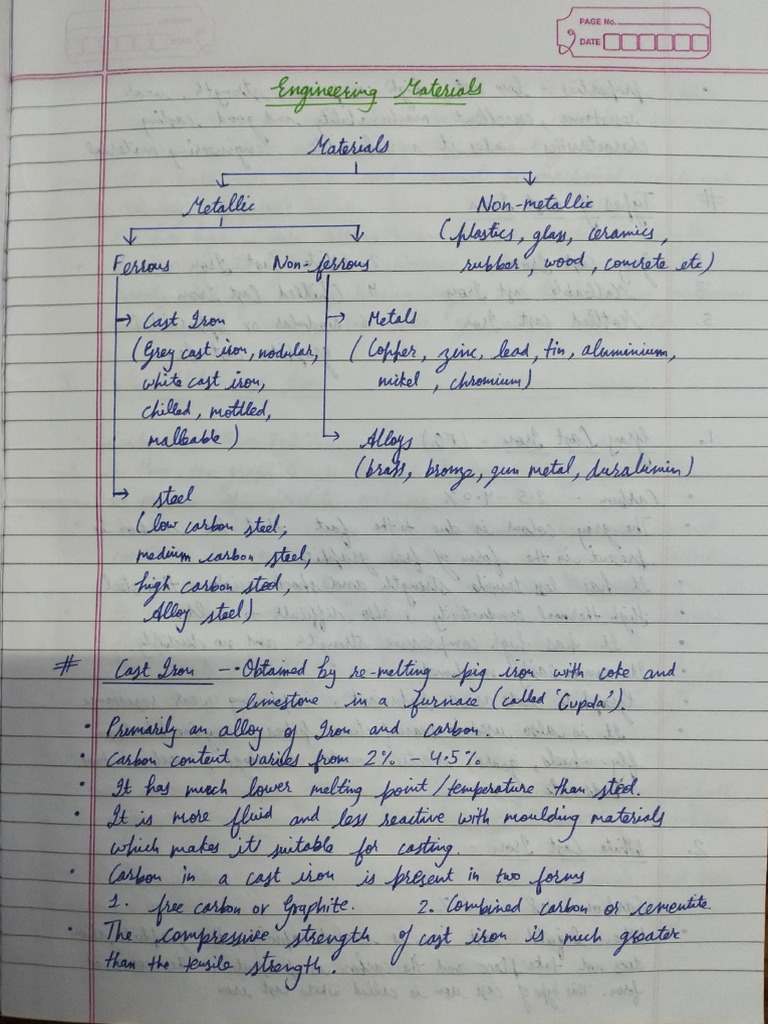 PAGE No.
DATE
Engineering Materials
Materials
Metallic
Non-metallic
(plastics, glass, ceramics,
rubber, wood, concrete etc)
Ferrous
Non-ferrous
Cast Iron
(Grey cast iron, nodular,
white cast iron,
chilled, mottled,
malleable)
Metals
(Copper, zinc, lead, tin, aluminium,
nickel, chromium)
Alloys
(brass, bronze, gun metal, duralumin)
steel
(low carbon steel,
medium carbon steel,
high carbon steel,
Alloy steel)
# Cast Iron – • Obtained by re-melting pig iron with coke and
limestone in a furnace (called 'Cupola').
• Primarily an alloy of Iron and carbon.
• Carbon content varies from 2% – 4.5%
• It has much lower melting point/temperature than steel.
• It is more fluid and less reactive with moulding materials
which makes it suitable for casting.
• Carbon in a cast iron is present in two forms
1. free carbon or Graphite. 2. Combined carbon or cementite.
• The compressive strength of cast iron is much greater
than the tensile strength.